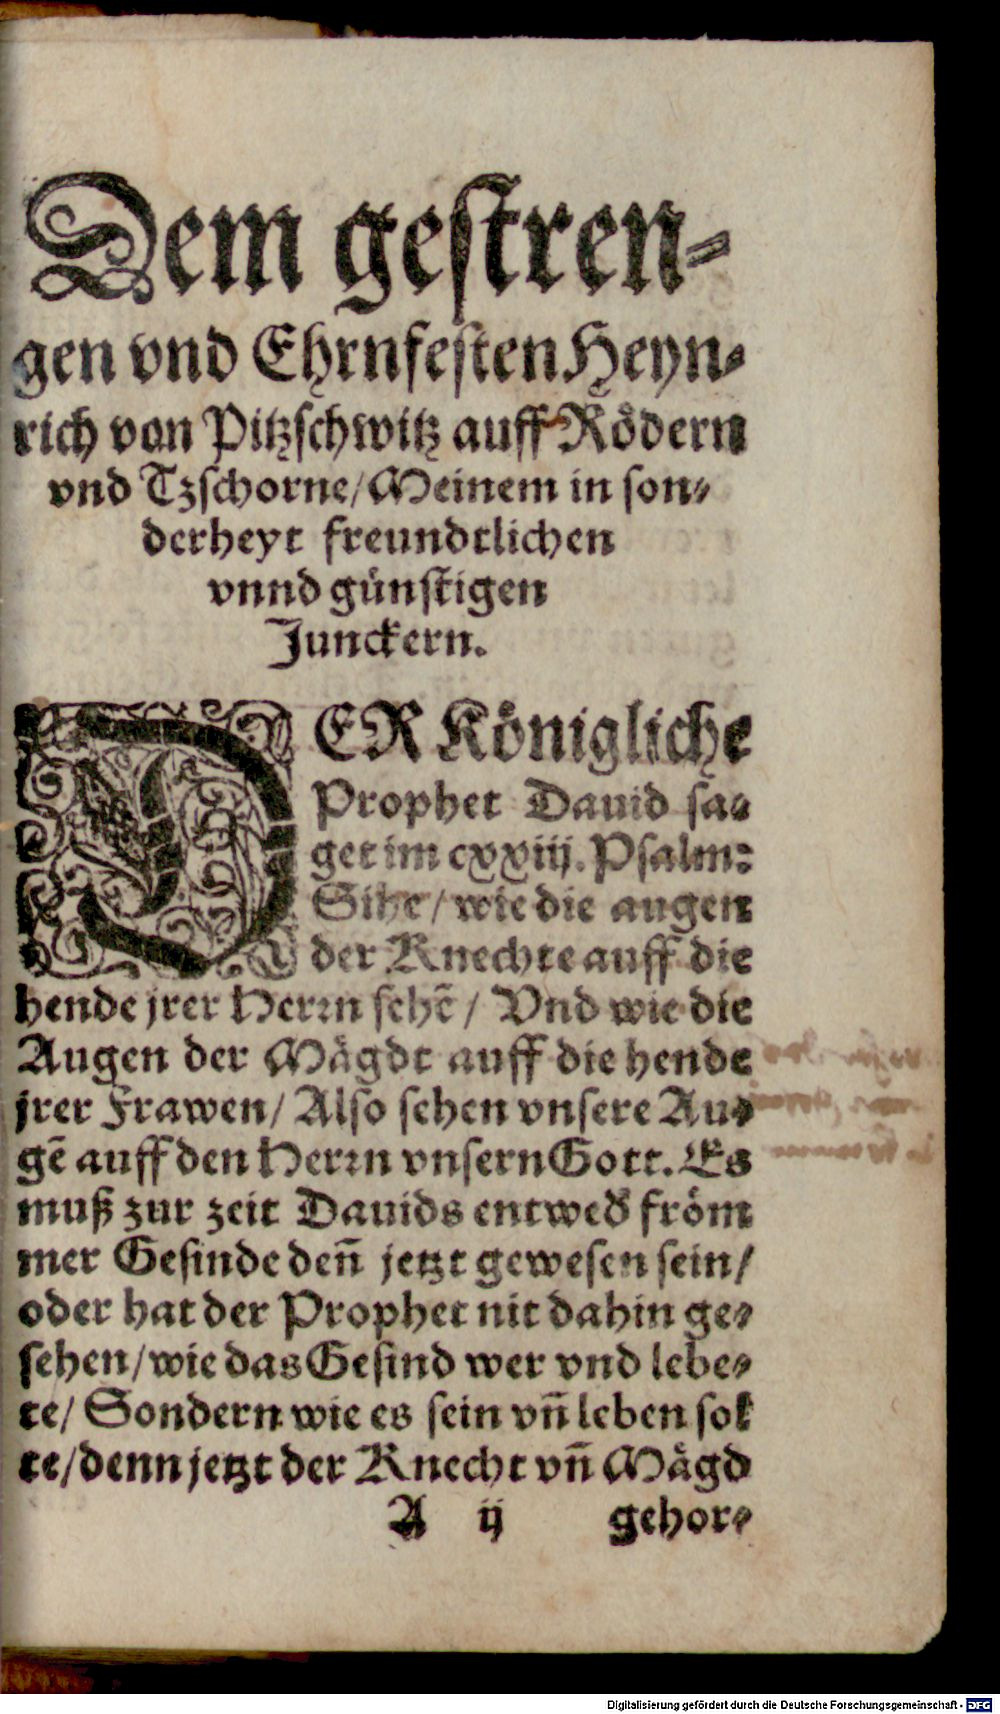 Dem gestren-
gen vnd Ehrnfesten Heyn-
rich von Pitzschwitz auff Rödern
vnd Tzschorne/ Meinem in son-
derheyt freundtlichen
vnnd günstigen
Junckern.
DER Königliche
Prophet Dauid sa-
get im cxxiij. Psalm:
Sihe/ wie die augen
der Knechte auff die
hende jrer Herrn sehẽ/ Vnd wie die
Augen der Mägdt auff die hende
jrer Frawen/ Also sehen vnsere Au-
gẽ auff den Herrn vnsern Gott. Es
muß zur zeit Dauids entwed̃ fröm
mer Gesinde deñ jetzt gewesen sein/
oder hat der Prophet nit dahin ge-
sehen/ wie das Gesind wer vnd lebe-
te/ Sondern wie es sein vñ leben sol
te/ denn jetzt der Knecht vñ Mägd
A ij gehor-
Digitalisierung gefördert durch die Deutsche Forschungsgemeinschaft - DFG